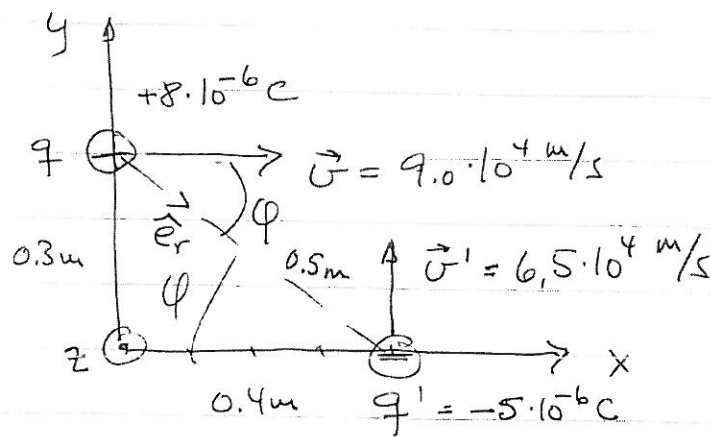 y
+8·10⁻⁶ C
q
v⃗ = 9.0·10⁴ m/s
φ
e⃗r
0.3m
φ
0.5m
v⃗' = 6,5·10⁴ m/s
z
x
0.4m
q' = -5·10⁻⁶ C